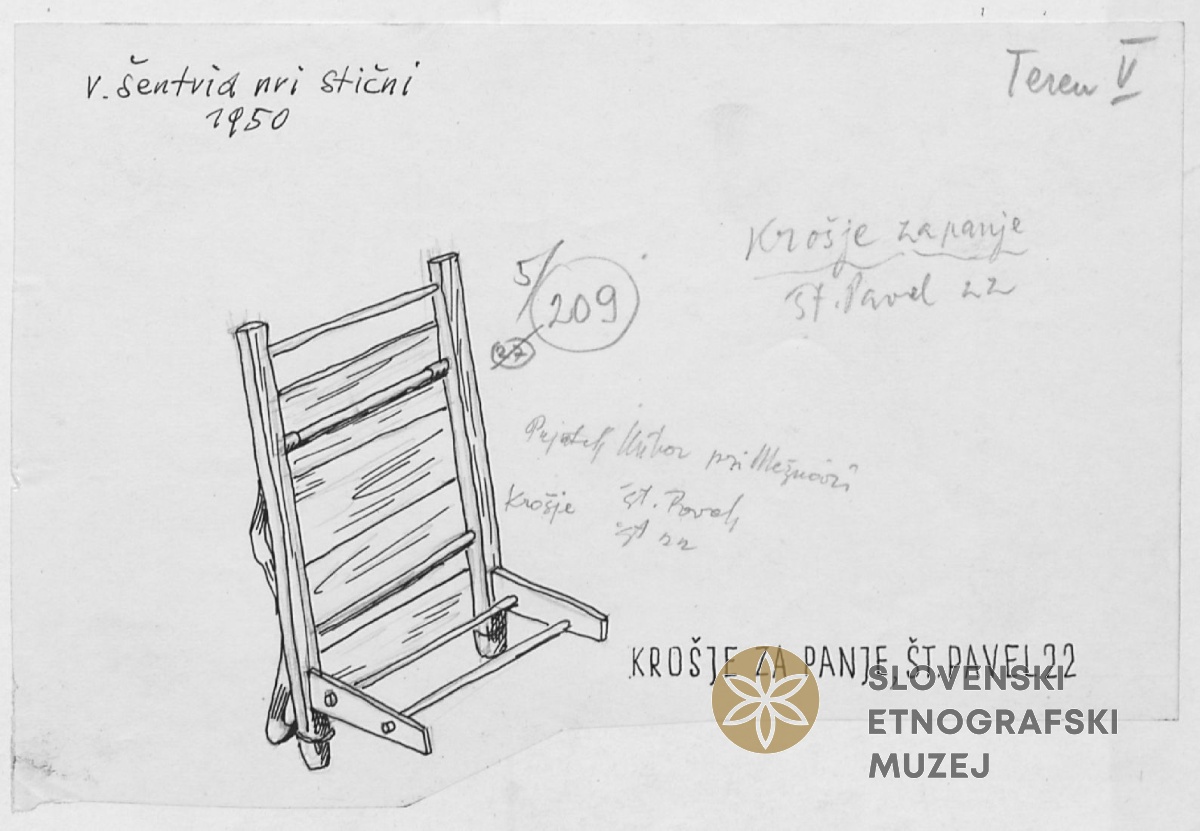 V. Šentvid pri Stični
1950
Teren V
Krošje za panje
Št. Pavel 22
5/209
27
pri
Krošje Št. Pavel
št 22
KROŠJE ZA PANJE, ŠT. PAVEL 22
SLOVENSKI
ETNOGRAFSKI
MUZEJ